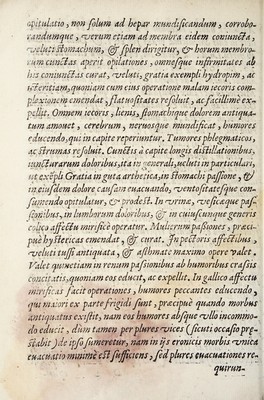 opitulatio, non solum ad hepar mundificandum, corrobo-
randumque, verum etiam ad membra eidem coniuncta,
veluti stomachum, & splen dirigitur, & horum membro-
rum cunctas aperit opilationes, omnesque infirmitates ab
his coniunctas curat, veluti, gratia exempli hydropim, ac
icteritiam, quoniam cum eius operatione malam iecoris com-
plexionem emendat, flatuositates resoluit, ac facillimè ex-
pellit. Omnem iecoris, lienis, stomachique dolorem antiqua-
tum amouet, cerebrum, neruosque mundificat, humores
educendo, qui in capite reperiuntur. Tumores phlegmaticos,
ac strumas resoluit. Cunctis à capite longis distillationibus,
iuncturarum doloribus, ita in generali, ueluti in particulari,
ut exẽpli Gratia in guta arthetica, in stomachi passione, &
in eiusdem dolore causam euacuando, ventositatesque con-
sumendo opitulatur, & prodest. In vrinæ, vesicæque pas-
sionibus, in lumborum doloribus, & in cuiuscunque generis
colico affectu mirificè operatur. Mulierum passiones, præci-
puè hystericas emendat, & curat. In pectoris affectibus,
veluti tussi antiquata, & asthmate maximo opere valet.
Valet quoetiam in renum passionibus ab humoribus crassis
concitatis, quoniam eos educit, ac expellit. In gallico affectu
mirificas facit operationes, humores peccantes educendo,
qui maiori ex parte frigidi sunt, præcipuè quando morbus
antiquatus existit, nam eos humores absque ullo incommo-
do educit, dum tamen per plures vices (sicuti occasio præ-
stabit) de ipso sumeretur, nam in ijs eronicis morbis vnica
euacuatio minimè est sufficiens, sed plures euacuationes re-
quirun-